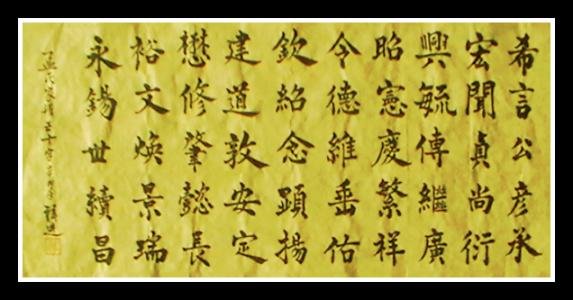 希言公彦承
宏聞貞尚衍
興毓傳繼廣
昭憲慶繁祥
令德維垂佑
欽紹念顯揚
建道敦安定
懋修肇懿長
裕文焕景瑞
永錫世續昌